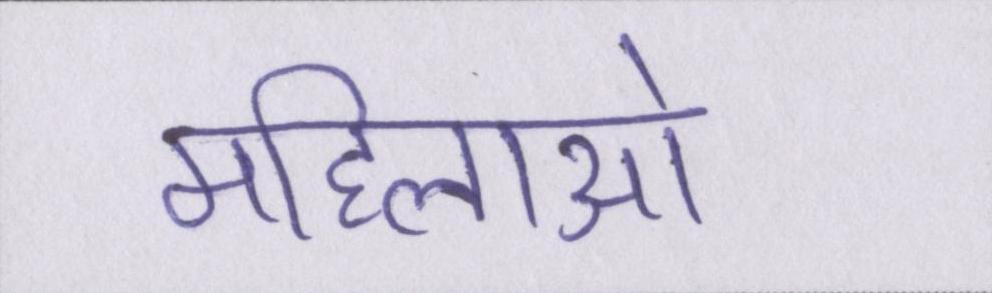 महिलाओ